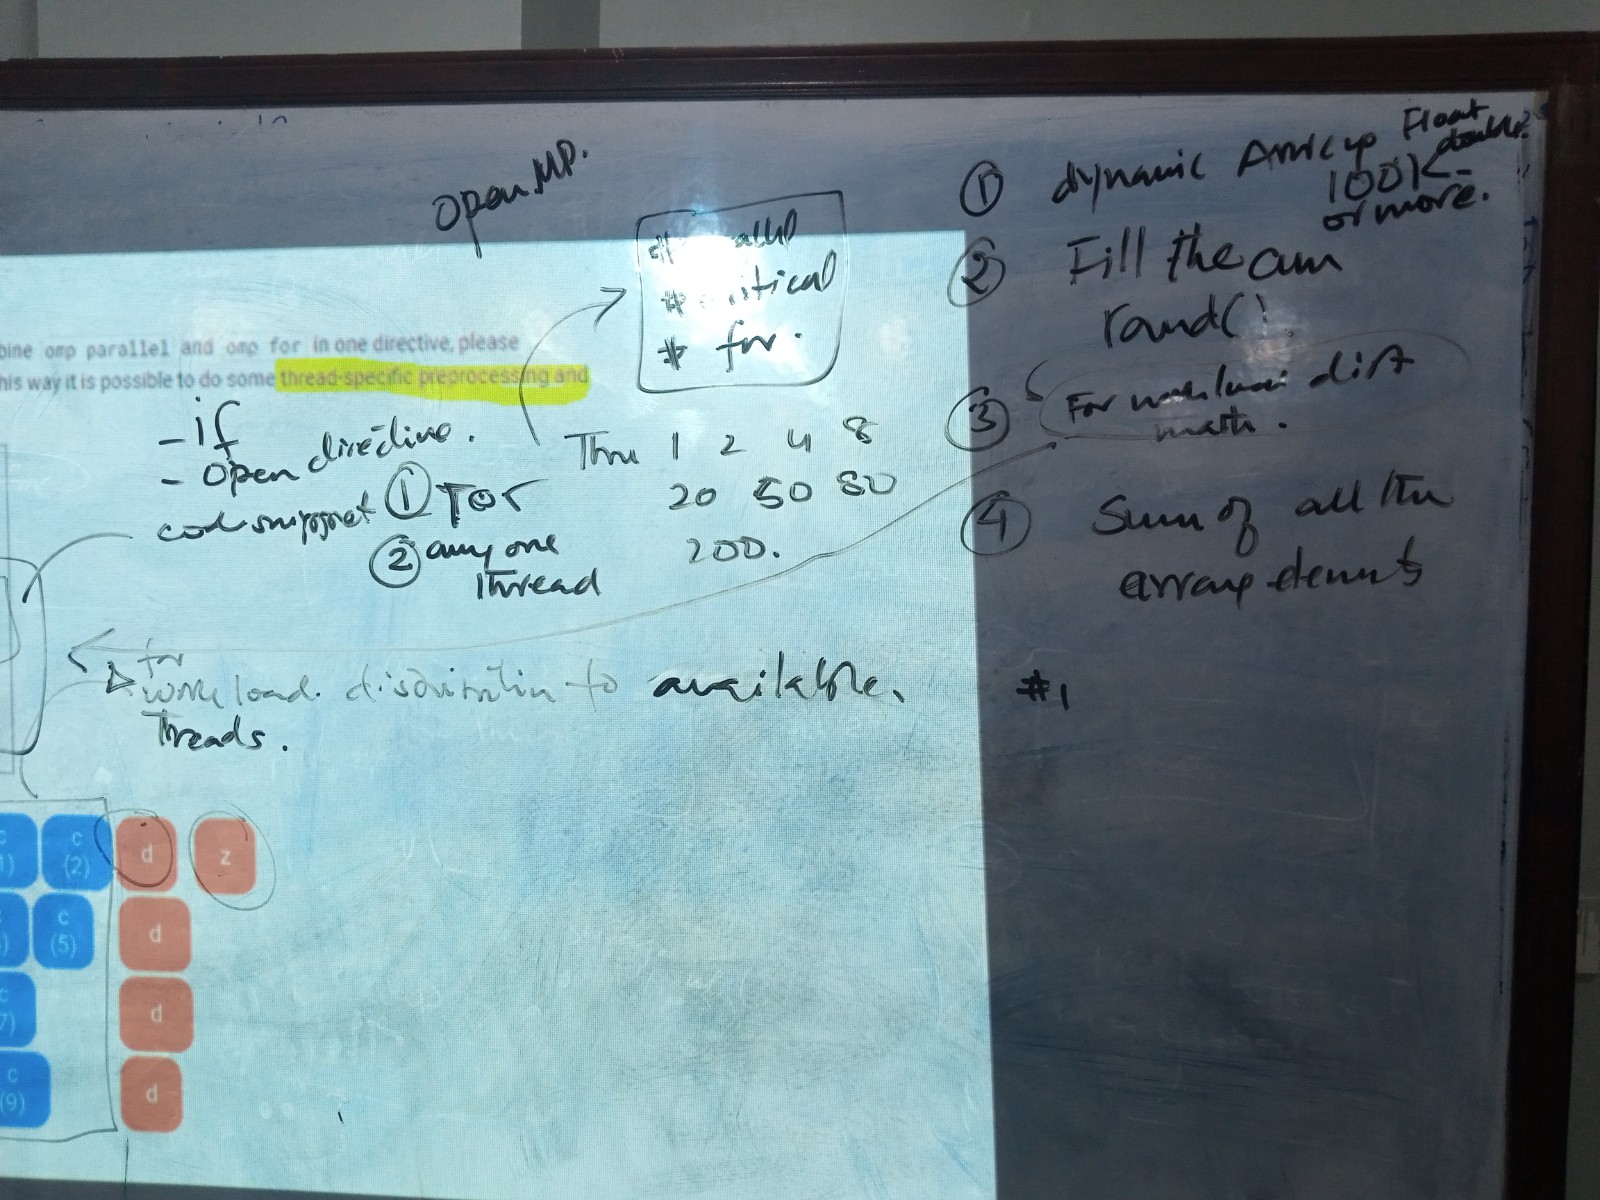 Open MP.
# parallel
# critical
# for.
bine omp parallel and omp for in one directive, please
his way it is possible to do some thread-specific preprocessing and
- if
- open directive.
code snippet ① for
② any one
thread
Thre 1 2 4 8
20 50 80
200.
for
work load. to available.
Threads.
① dynamic Array Float
double.
100K
or more.
② Fill the arr
rand()
③ For dist
math.
④ Sum of all the
array elements
#1
c
(2)
d
z
c
(5)
d
c
7)
d
c
(9)
d